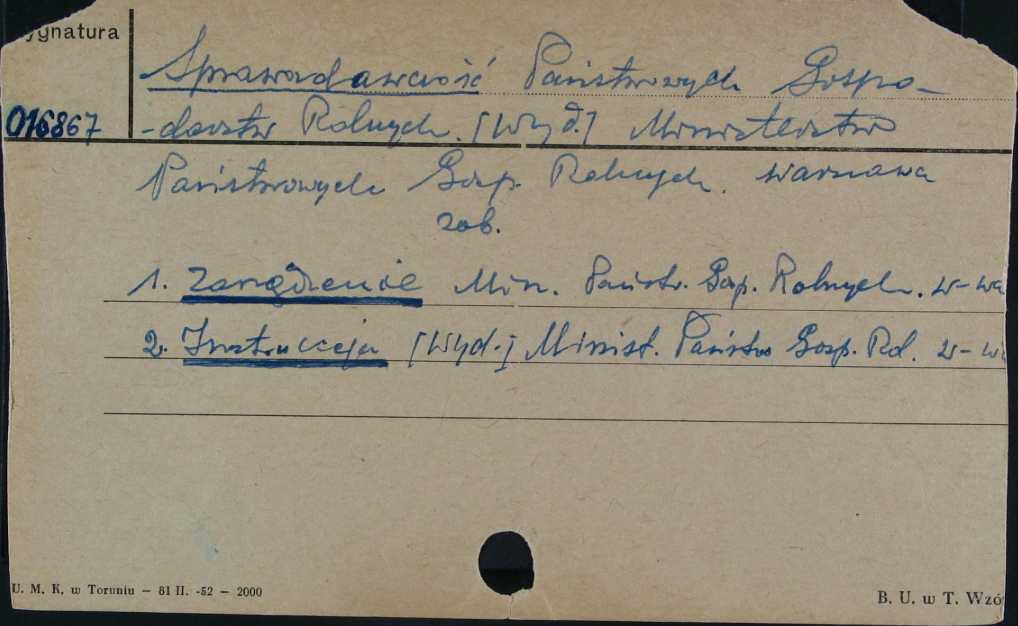 ygnatura
Sprawozdawczość Państwowych Gospo-
016867
-darstw Rolnych. [Wyd.] Ministerstwo
Państwowych Gosp. Rolnych. Warszawa
zob.
1. Zarządzenie Min. Państw. Gosp. Rolnych. W-wa
2. Instrukcja [Wyd.] Minist. Państw Gosp. Rol. W-w
U. M. K. w Toruniu — 81 II. -52 — 2000
B. U. w T. Wzó